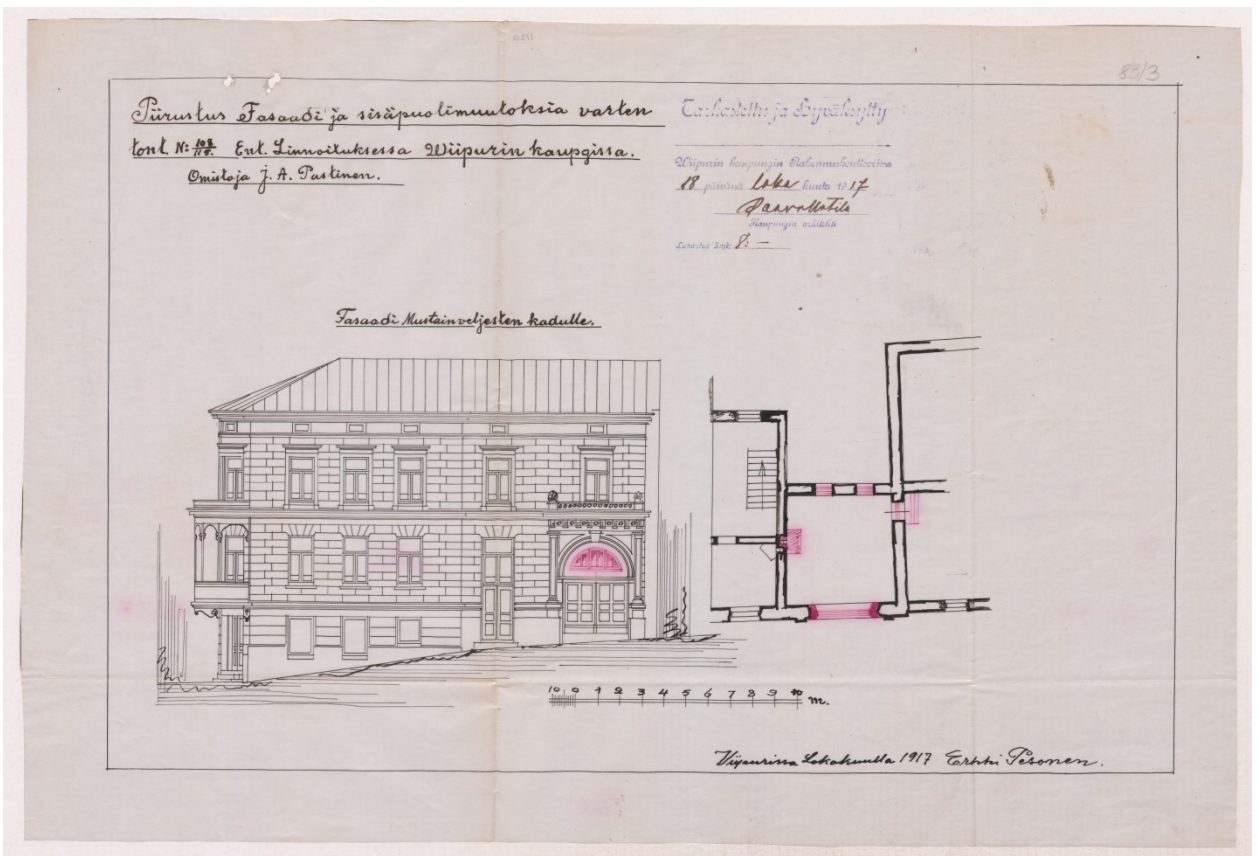 83/3
Piirustus Fasaadi ja sisäpuolimuutoksia varten
tont. N: 108/118. Ent. Linnoituksessa Wiipurin kaupgissa.
Omistaja J. A. Pastinen.
Tarkastettu ja Hyväksytty
Wiipurin kaupungin Rakennuskonttorissa
18 päivänä loka kuuta 1917
Kaupungin arkitehti
Lunastus Smk 8:—
Fasaadi Mustainveljesten kadulle.
10 0 1 2 3 4 5 6 7 8 9 10 m.
Viipurissa Lokakuulla 1917 Erkki Pesonen.